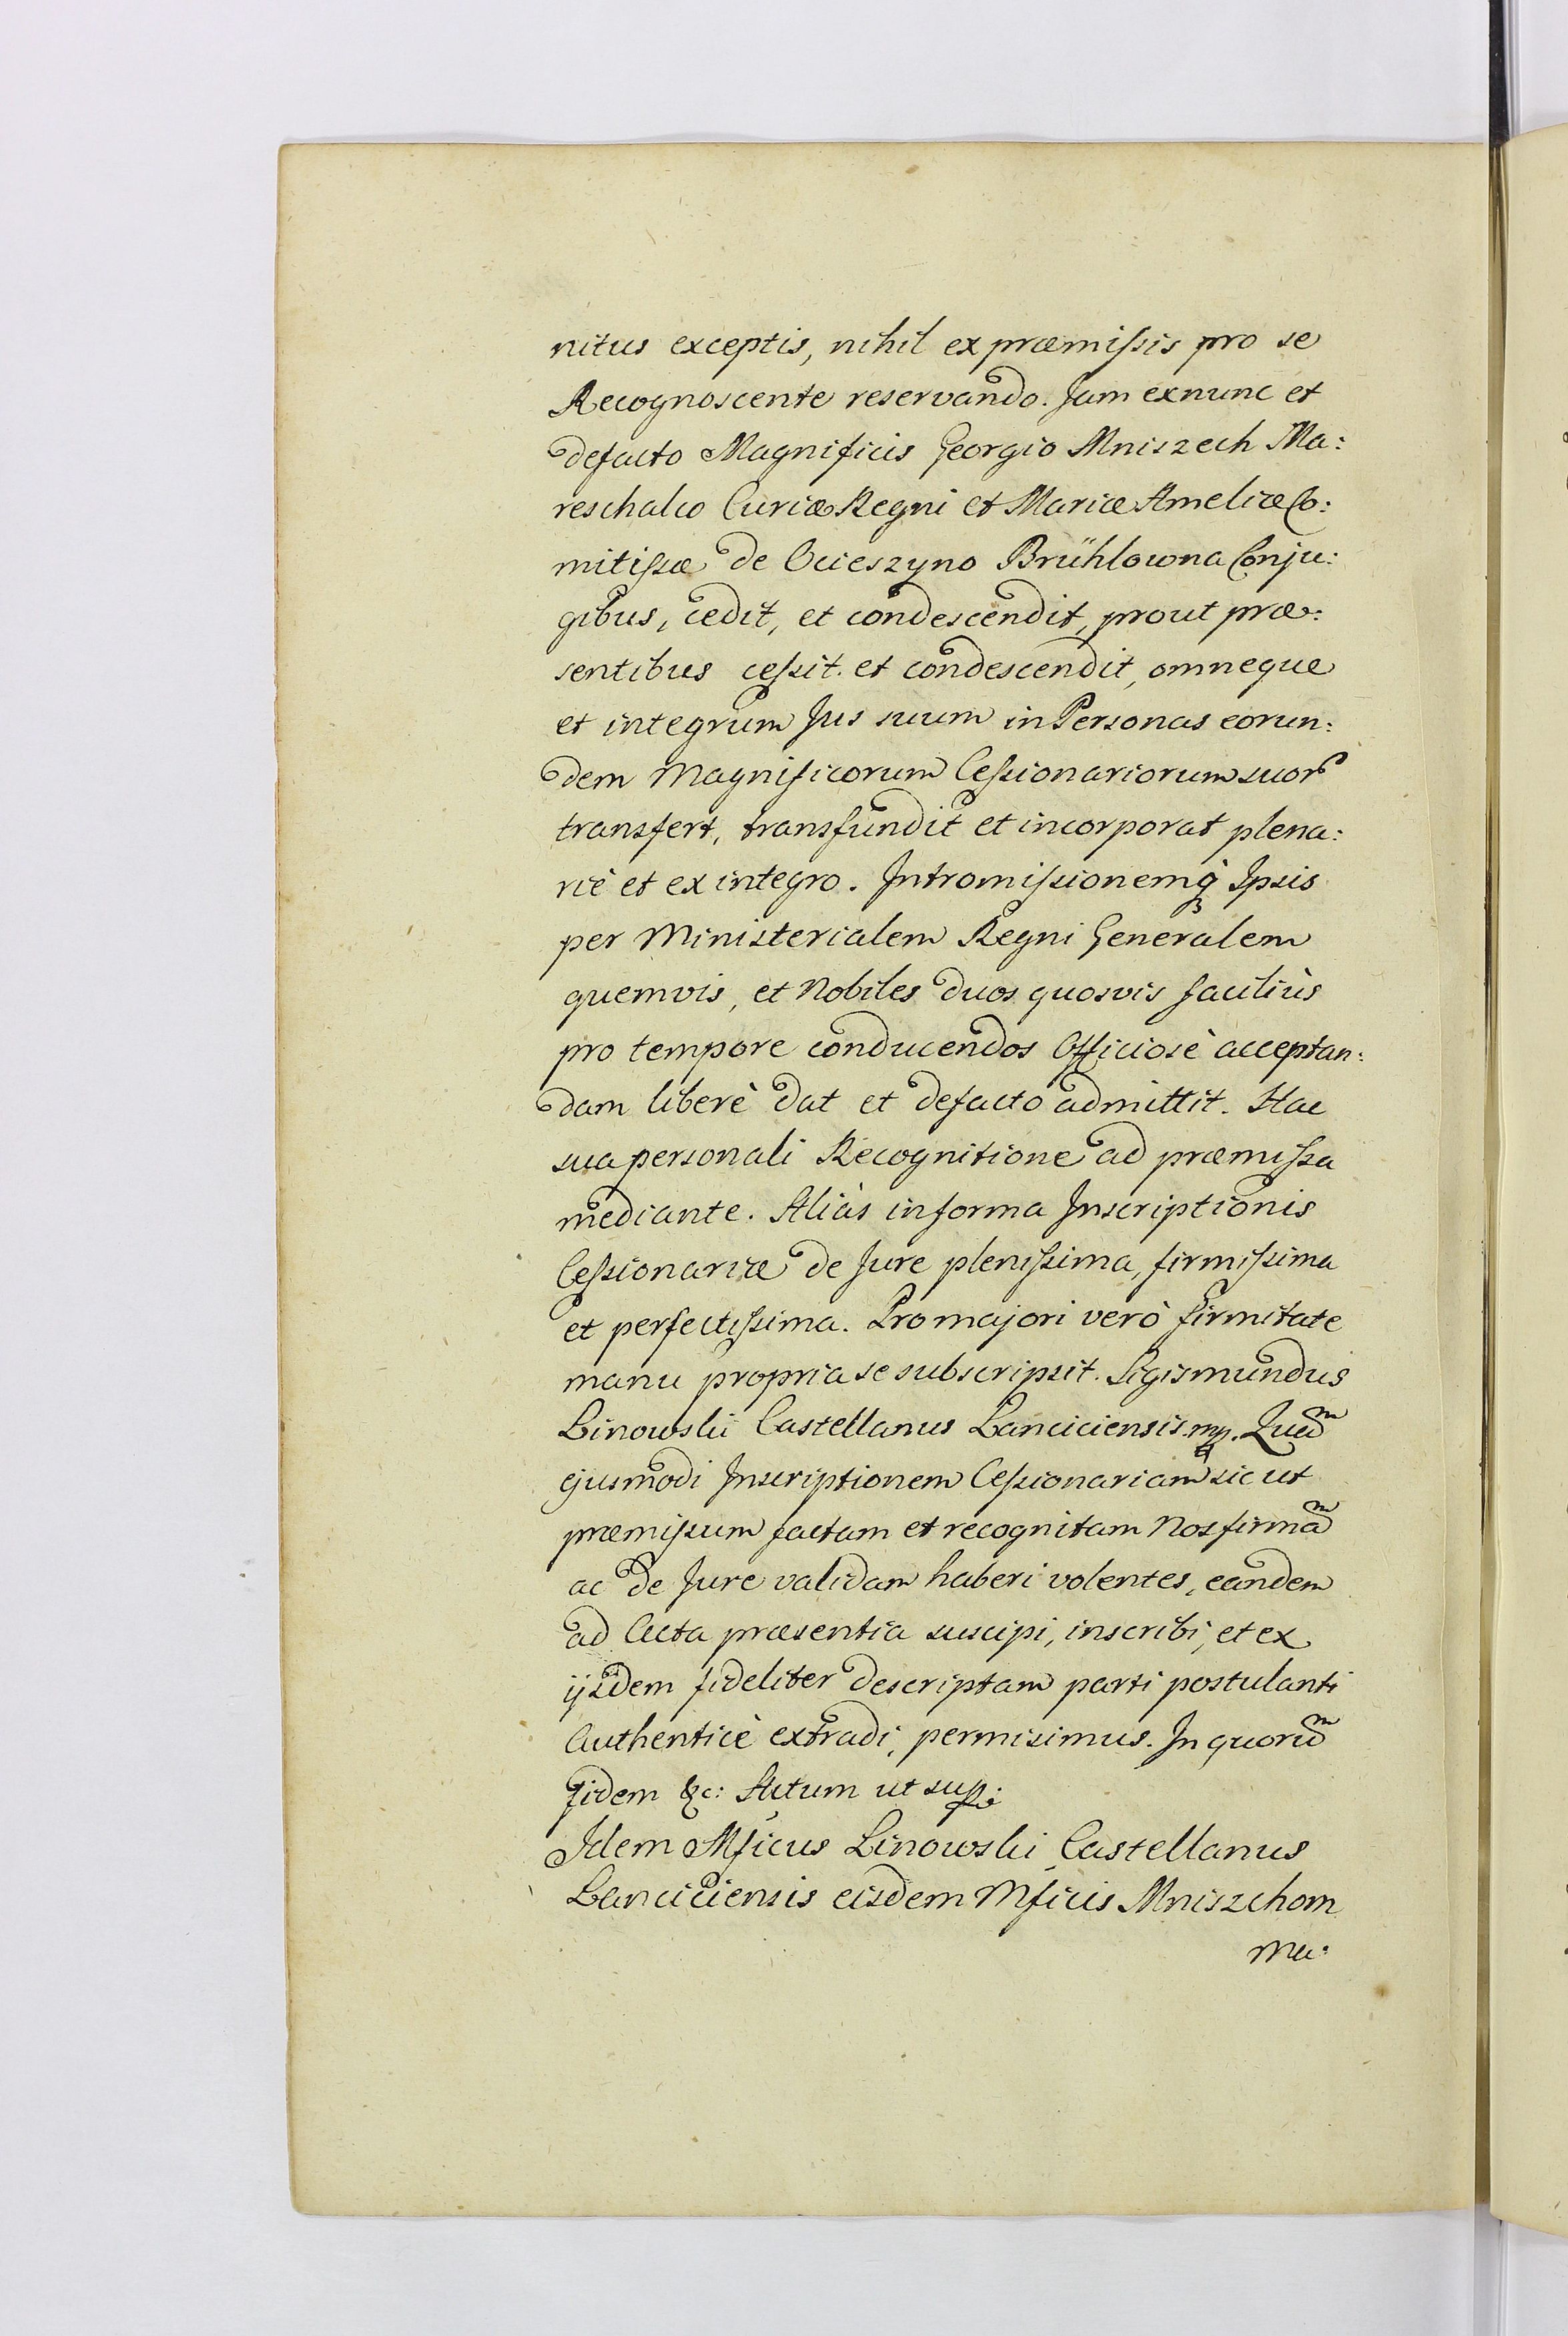 nitus exceptis, nihil ex præmissis pro se
Recognoscente reservando. Jam exnunc et
defacto Magnificis Georgio Mniszech Ma:
reschalco Curiæ Regni et Mariæ Ameliæ Co:
mitissæ de Ocieszyno Brühlowna Conju:
gibus, cedit, et condescendit, prout præ:
sentibus cessit. et condescendit, omneque
et integrum Jus suum in Personas eorun:
dem Magnificorum Cessionariorum suor
transfert, transfundit et incorporat plena:
riè et ex integro. Intromissionemq̀ Ipsis
per Ministerialem Regni Generalem
quemvis, et Nobiles duos quosvis faciliùs
pro tempore conducendos Officiosè acceptan:
dam liberè dat et defacto admittit. Hac
sua personali Recognitione ad præmissa
mediante. Aliàs in forma Inscriptionis
Cessionariæ de Jure plenissima, firmissima
et perfectissima. Pro majori verò firmitate
manu propria se subscripsit. Sigismundus
Linowski Castellanus Lanciciensis. mp. Quam
ejusmodi Inscriptionem Cessionariam sic ut
præmissum factam et recognitam Nos firmam
ac de Jure validam haberi volentes, eandem
ad Acta præsentia suscipi, inscribi, et ex
ijsdem fideliter descriptam parti postulanti
Authenticè extradi, permisimus. In quorum
fidem &c: Actum ut supra
Idem Mficus Linowski Castellanus
Lanciciensis eisdem Mficis Mniszchom
Ma: